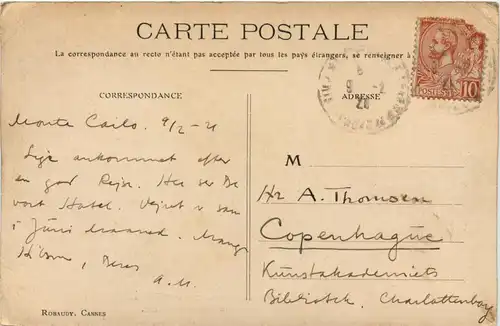 CARTE POSTALE
La correspondance au recto n'étant pas acceptée par tous les pays étrangers, se renseigner à
CORRESPONDANCE
ADRESSE
POSTES 10
Monte Carlo. 9/2 - 21
Lige ankommet efter
en god Rejse. Her ser De
vort Hotel. Vejret er som
i Juni maaned. Mange
Hilsner, Deres
A.M.
M
Hr A. Thomsen
Copenhague
Kunstakademiets
Bibliotek. Charlottenborg
ROBAUDY, CANNES